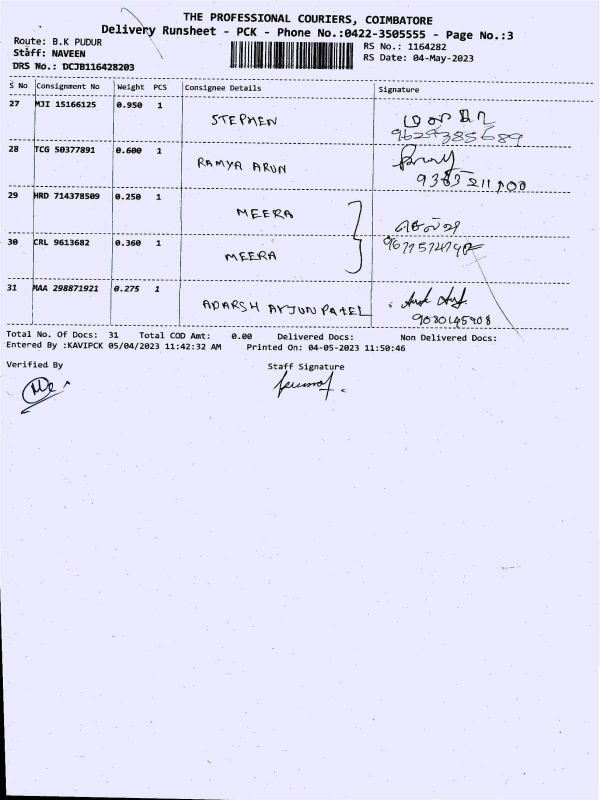 THE PROFESSIONAL COURIERS, COIMBATORE
Delivery Runsheet - PCK - Phone No.:0422-3505555 - Page No.:3
Route: B.K PUDUR
RS No.: 1164282
Staff: NAVEEN
RS Date: 04-May-2023
DRS No.: DCJB116428203
S No Consignment No Weight PCS Consignee Details Signature
27 MJI 15166125 0.950 1 STEPHEN
9629385689
28 TCG 50377891 0.600 1 RAMYA ARUN
29 HRD 714378509 0.250 1 MEERA
30 CRL 9613682 0.360 1 MEERA
31 MAA 298871921 0.275 1 ADARSH ARJUN PATEL
Total No. Of Docs: 31 Total COD Amt: 0.00 Delivered Docs: Non Delivered Docs:
Entered By :KAVIPCK 05/04/2023 11:42:32 AM Printed On: 04-05-2023 11:50:46
Verified By Staff Signature